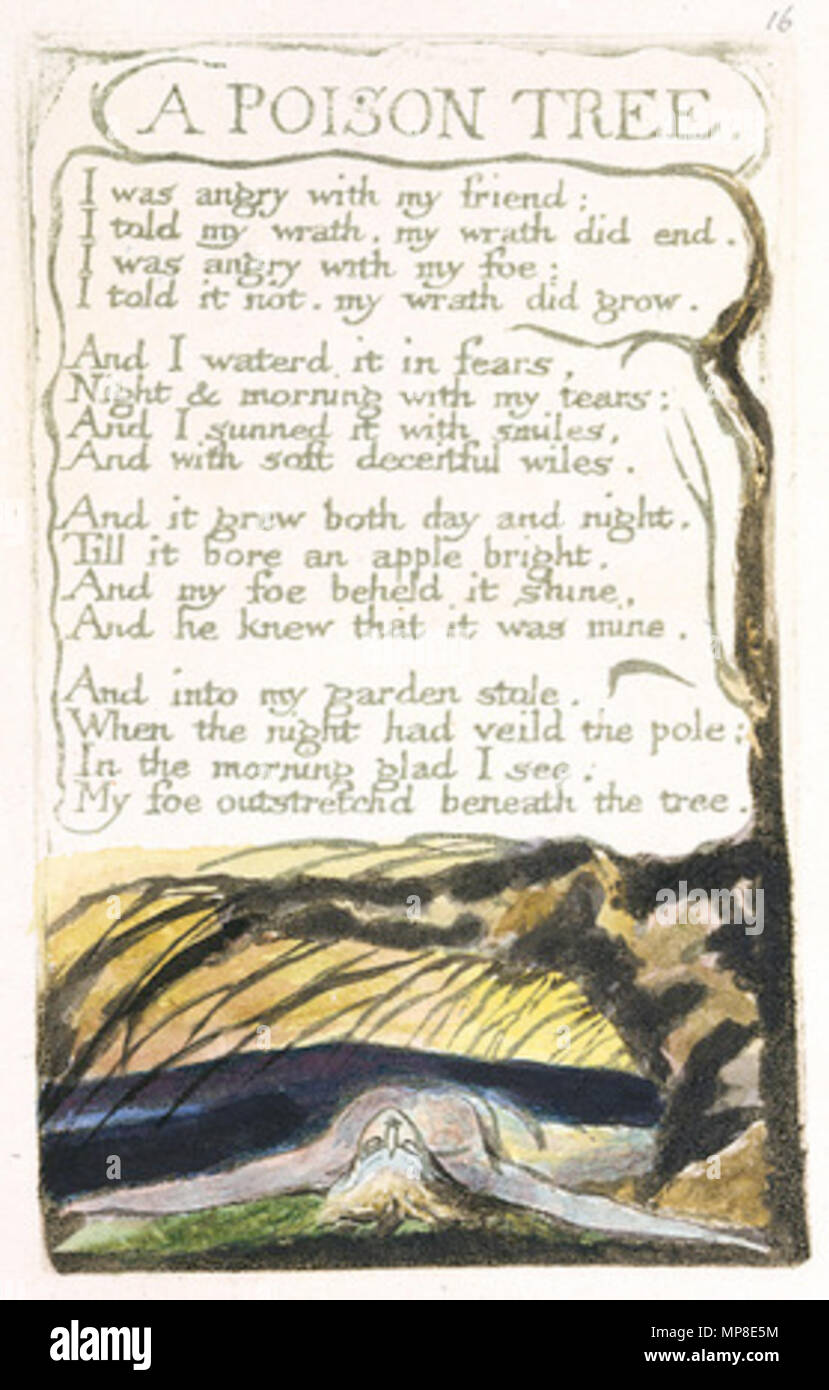 16
A POISON TREE.
I was angry with my friend:
I told my wrath, my wrath did end.
I was angry with my foe:
I told it not. my wrath did grow.
And I waterd it in fears,
Night & morning with my tears:
And I sunned it with smiles,
And with soft deceitful wiles.
And it grew both day and night.
Till it bore an apple bright.
And my foe beheld it shine,
And he knew that it was mine.
And into my garden stole.
When the night had veild the pole;
In the morning glad I see;
My foe outstretchd beneath the tree.
a
a
a
a
alamy
alamy
Image ID: MP8E5M
www.alamy.com